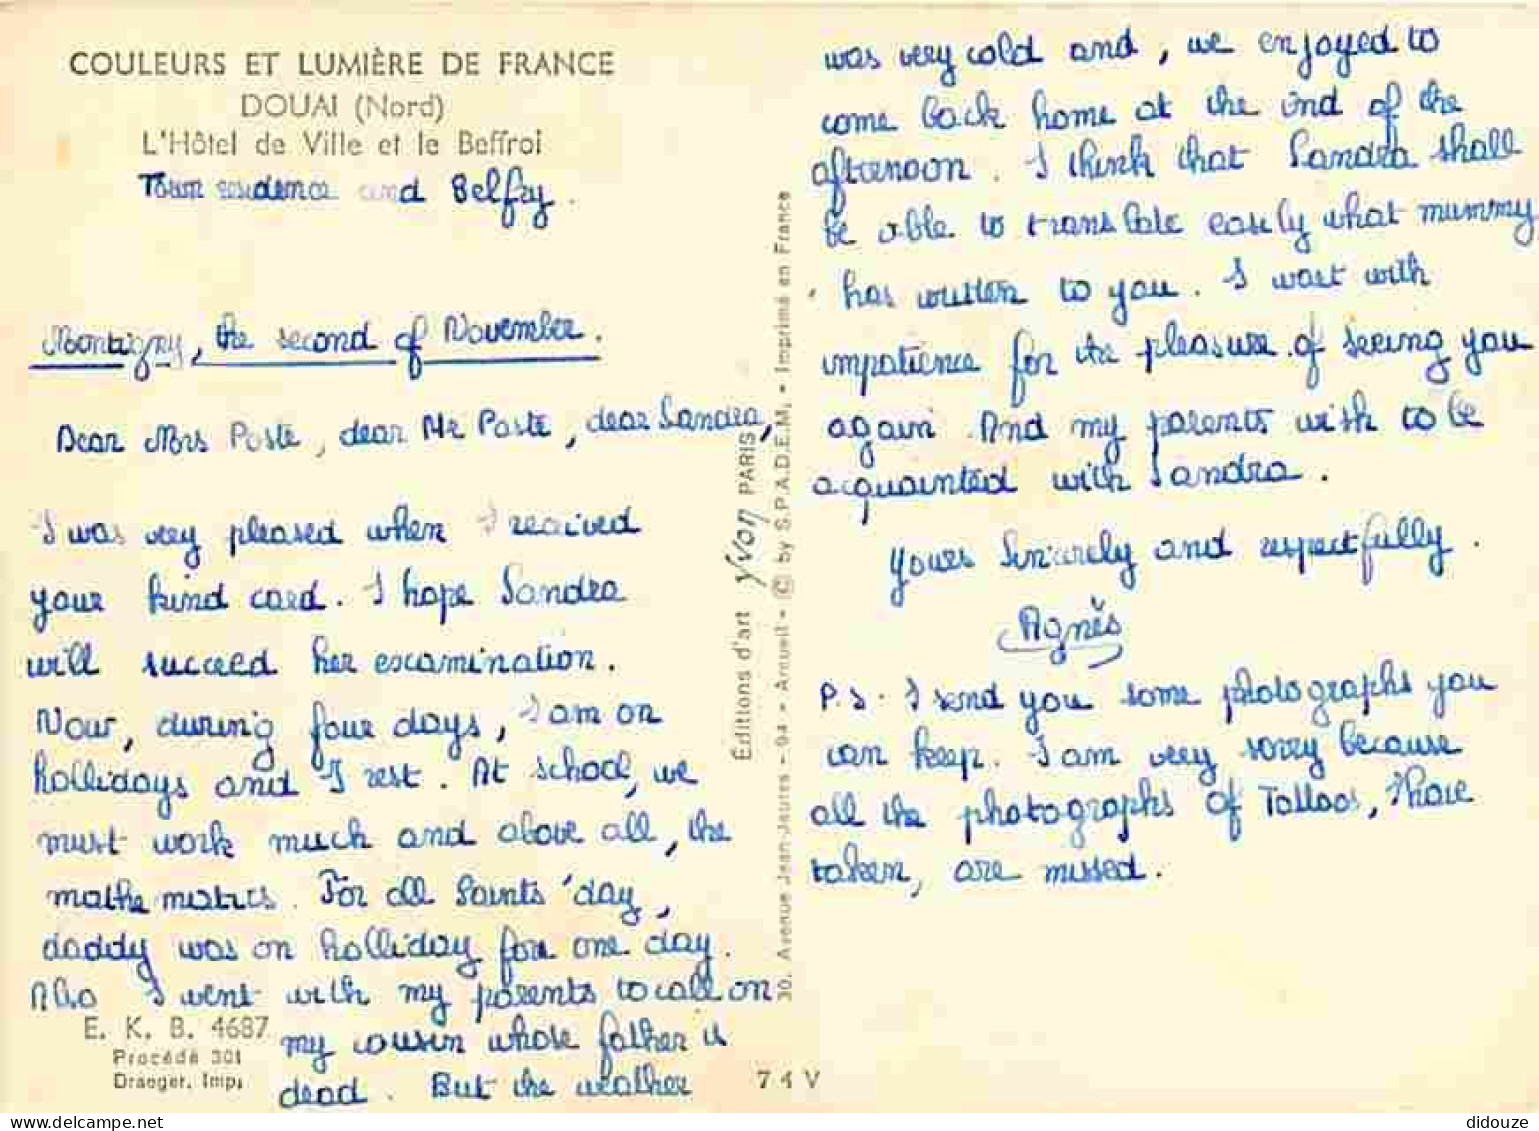 COULEURS ET LUMIÈRE DE FRANCE
DOUAI (Nord)
L'Hôtel de Ville et le Beffroi
Town residence and Belfry.
Montigny, the second of November.
Dear Mrs Poste, dear Mr Poste, dear Sandra,
I was very pleased when I received
your kind card. I hope Sandra
will succeed her examination.
Now, during four days, I am on
hollidays and I rest. At school, we
must work much and above all, the
mathematics. For all Saints'day,
daddy was on holliday for one day.
Also I went with my parents to call on
my cousin whose father is
dead. But the weather
E. K. B. 4687
Procédé 301
Draeger, Imp.
Éditions d'art Yvon PARIS
30, Avenue Jean-Jaures - 94 - Arcueil - © by S.P.A.D.E.M. - Imprimé en France
74V
was very cold and, we enjoyed to
come back home at the end of the
afternoon. I think that Sandra shall
be able to translate easily what mummy
has written to you. I wait with
impatience for the pleasure of seeing you
again. And my parents wish to be
acquainted with Sandra.
Yours Sincerely and respectfully.
Agnès
P.S. I send you some photographs you
can keep. I am very sorry because
all the photographs of Tolloos, I have
taken, are missed.
didouze